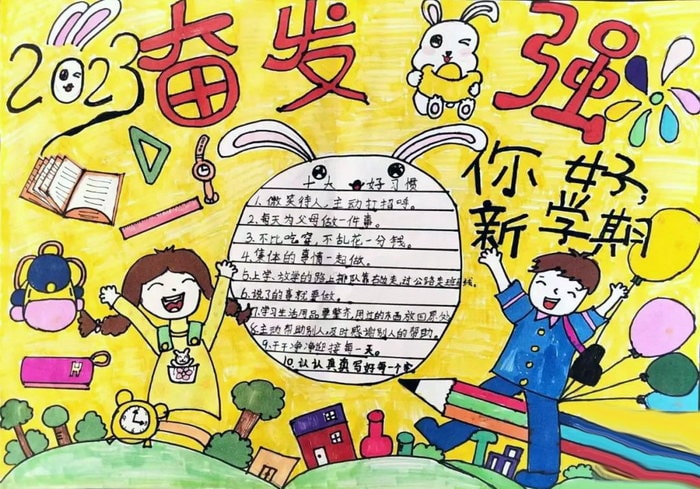 2023 奋发 强
你好,
新学期
十大 好习惯
1.微笑待人,主动打招呼。
2.每天为父母做一件事。
3.不比吃穿,不乱花一分钱。
4.集体的事情一起做。
5.上学、放学的路上排队靠右边走,过公路走斑马线。
6.说了的事就要做。
7.学习生活用品要整齐,用过的东西放回原处
8.主动帮助别人,及时感谢别人的帮助。
9.干干净净迎接每一天。
10.认认真真写好每一个字